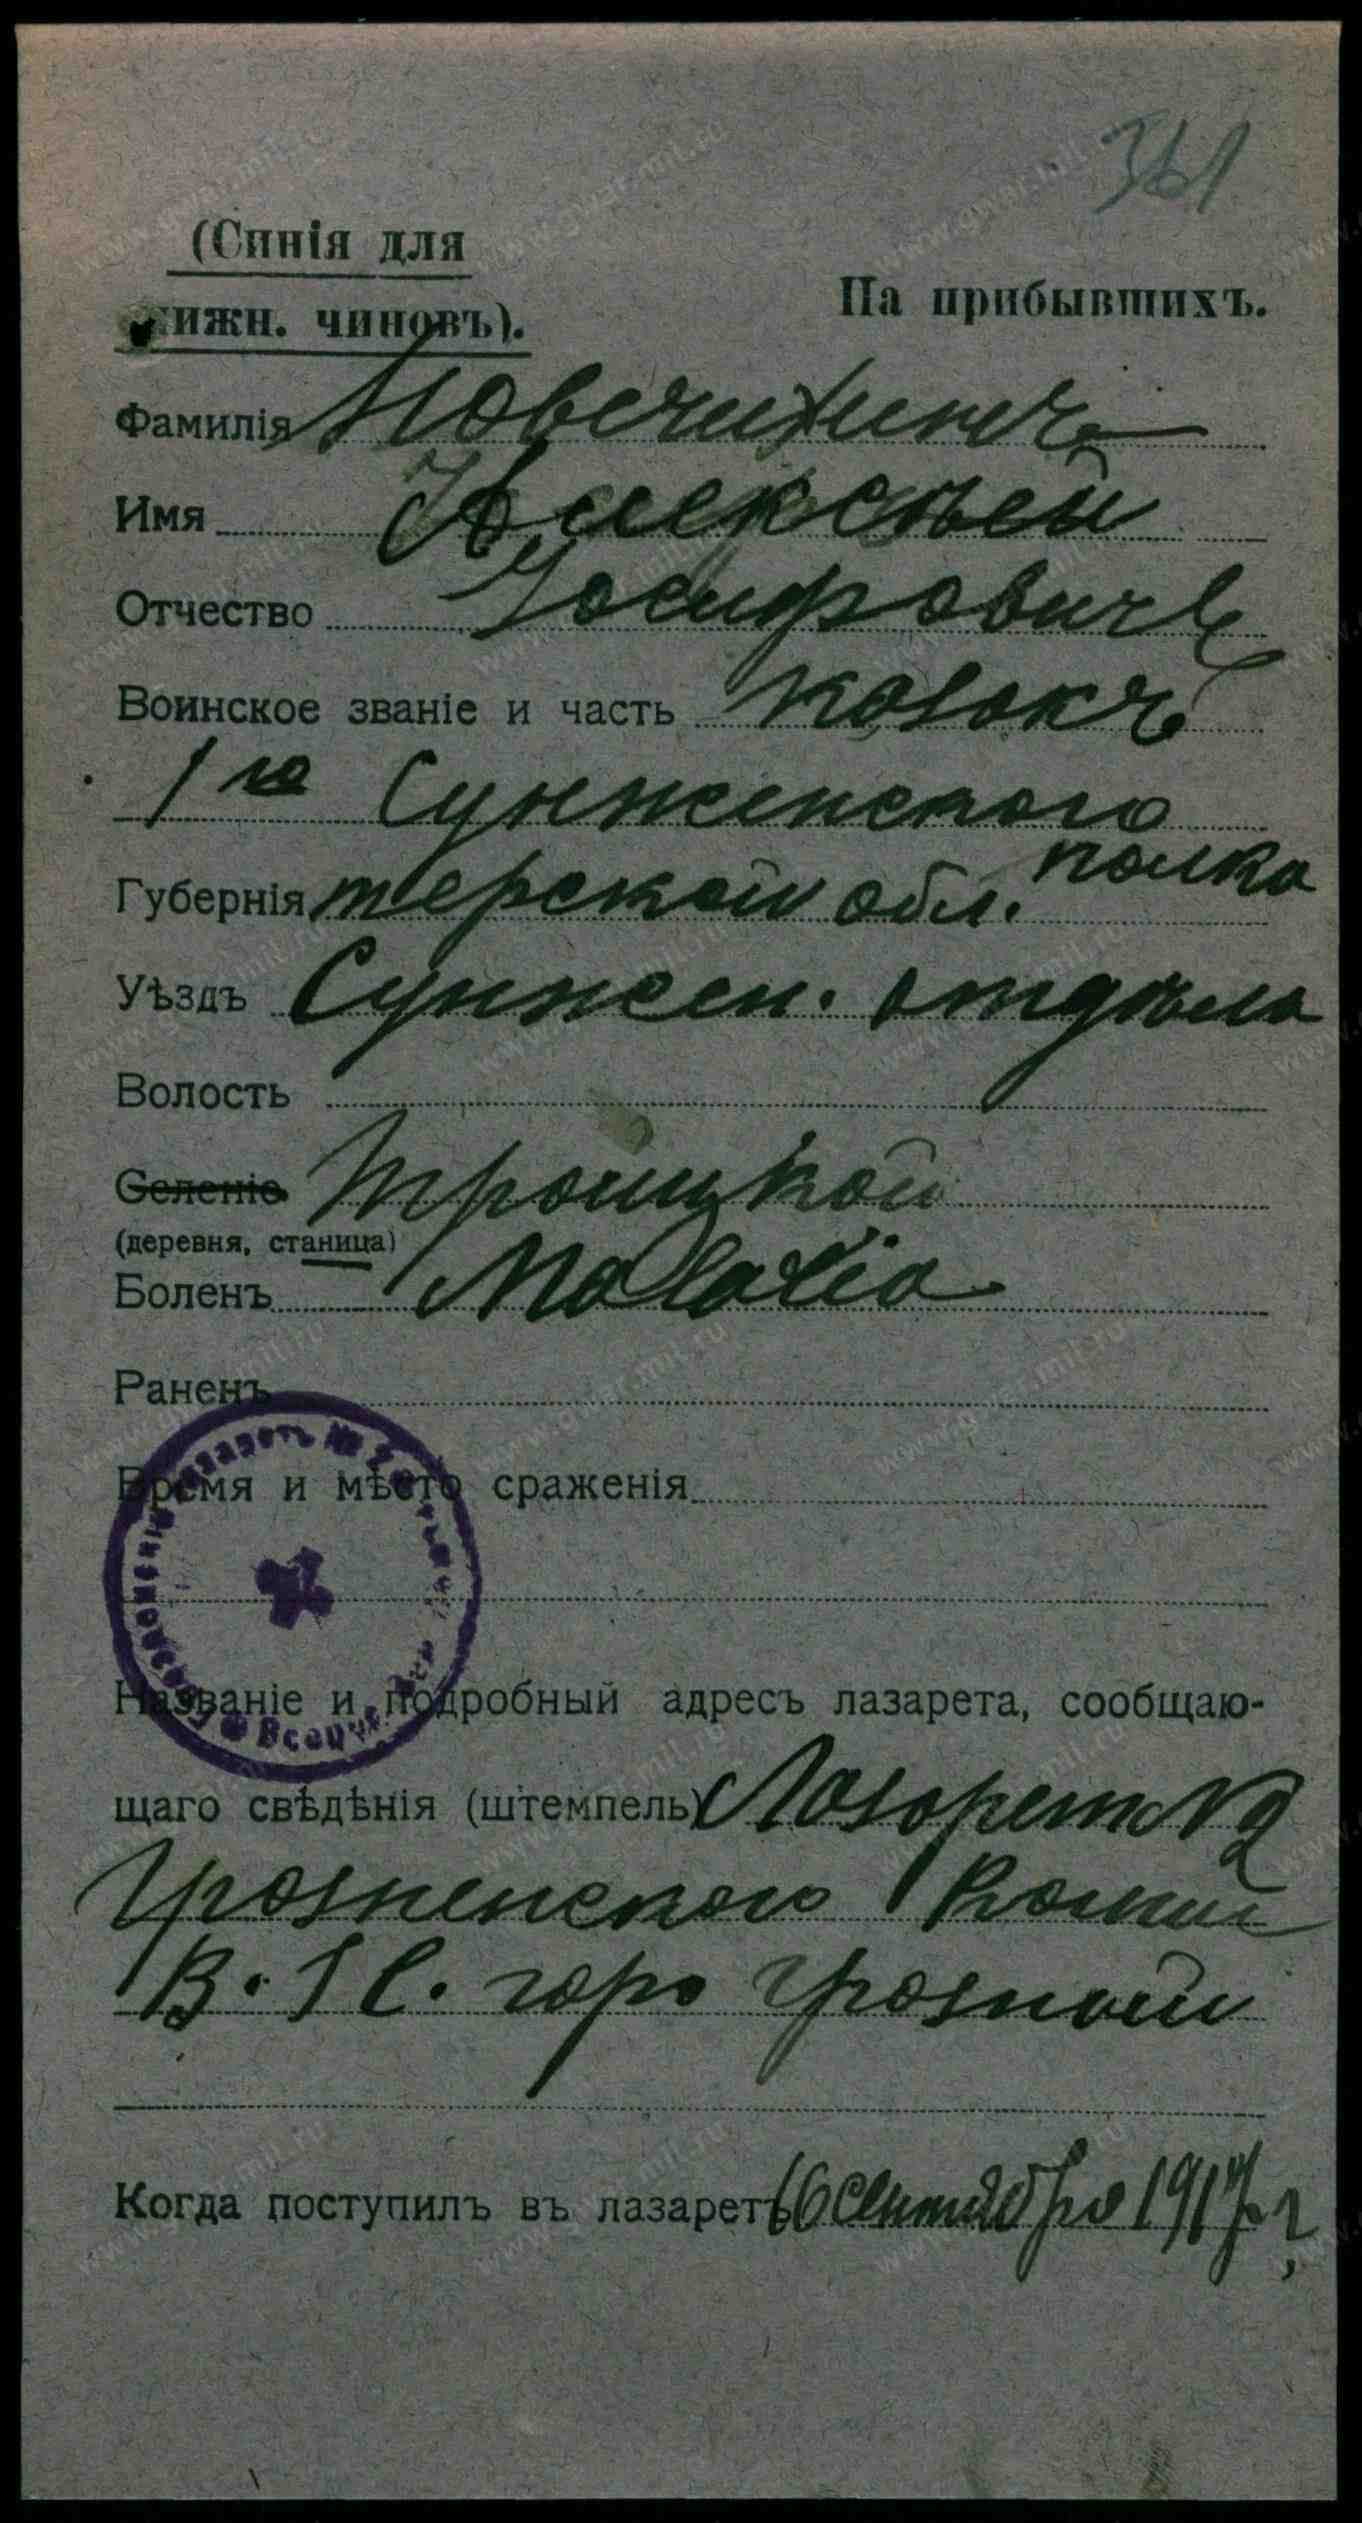 361
(Синія для
нижн. чиновъ).
На прибывшихъ.
Фамилія Мовсчихинъ
Имя Алексѣй
Отчество Іосифовичъ
Воинское званіе и часть козакъ
1го Сунженского
полка
Губернія терской обл.
Уѣздъ Сунжен. отдѣла
Волость
Селеніе Троицкой
(деревня, станица)
Боленъ Malaria
Раненъ
Время и мѣсто сраженія
Названіе и подробный адресъ лазарета, сообщаю-
щаго свѣдѣнія (штемпель) Лазаретъ №2
Грозненского Комит
В. З С. гор Грозный
Когда поступилъ въ лазаретъ 6 сентября 1917 г.